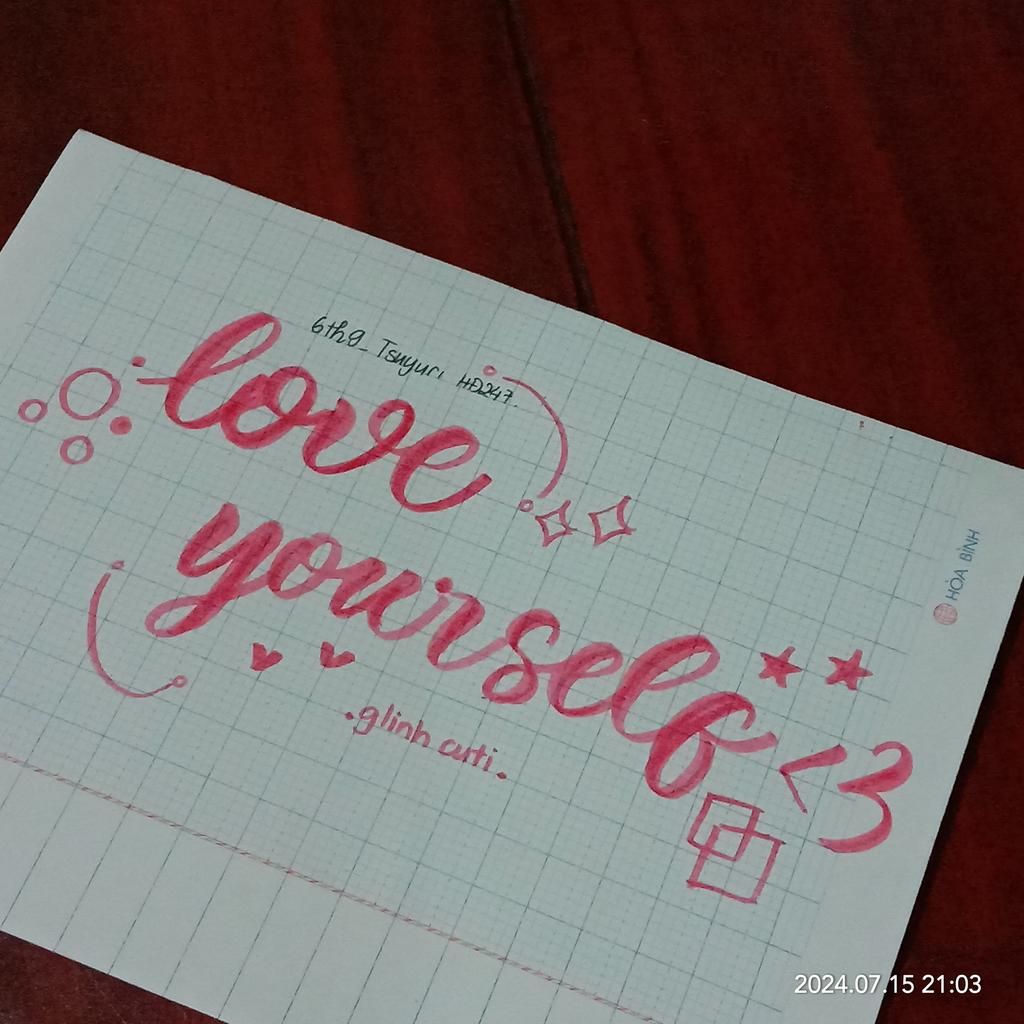 6thg_Tsuyuri HĐ247.
love
yourself <3
.glinh cuti.
HÒA BÌNH
2024.07.15 21:03